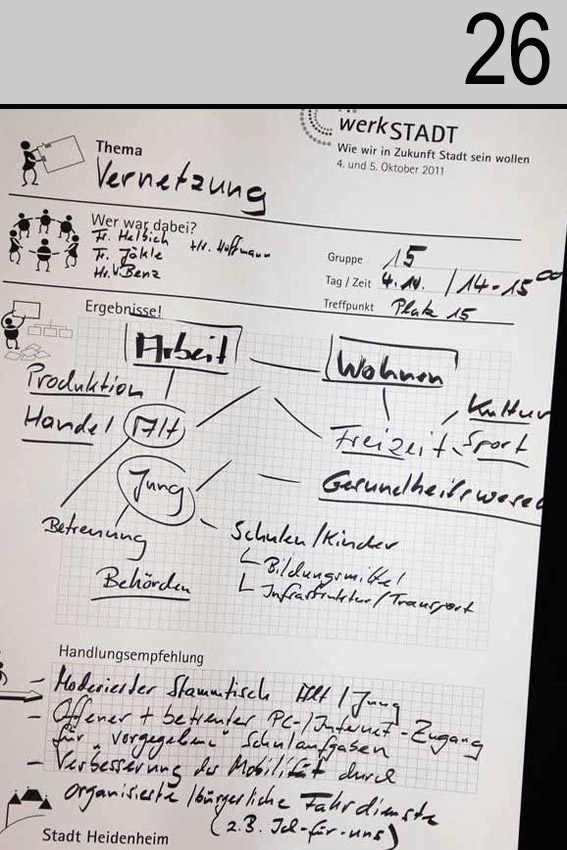 26
werkSTADT
Wie wir in Zukunft Stadt sein wollen
4. und 5. Oktober 2011
Thema
Vernetzung
Wer war dabei?
Fr. Helbich +Hr. Hoffmann
Fr. Jäkle
Hr. v. Benz
Gruppe 15
Tag / Zeit 4.10. / 14-15 00
Treffpunkt Platz 15
Ergebnisse!
Arbeit
Wohnen
Produktion
Handel
Alt
Kultur
Freizeit Sport
Jung
Gesundheitswesen
Betreuung
Schulen/Kinder
Bildungsmittel
Behörden
Infrastruktur/Transport
Handlungsempfehlung
- Moderierter Stammtisch Alt / Jung
- Offener + betreuter PC-/Internet-Zugang
für "vorgegebene" Schulaufgaben
- Verbesserung der Mobilität durch
organisierte /bürgerliche Fahrdienste
(z.B. Ich-für-uns)
Stadt Heidenheim